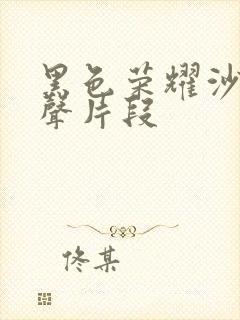 黑色荣耀沙
聲片段
佟某